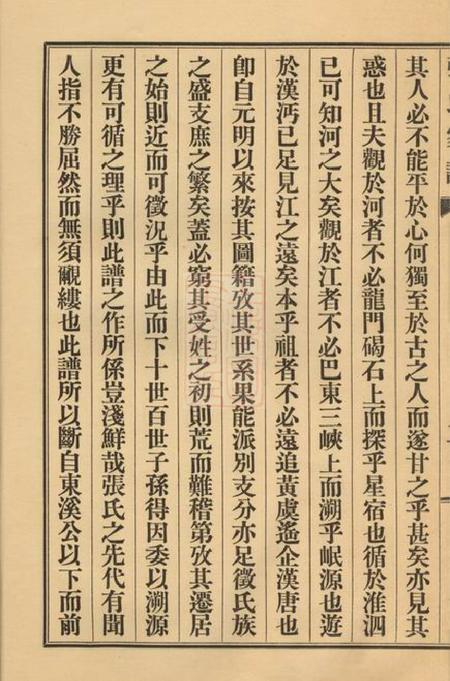 其人必不能平於心何獨至於古之人而遂甘之乎甚矣亦見其
惑也且夫觀於河者不必龍門碣石上而探乎星宿也循於淮泗
已可知河之大矣觀於江者不必巴東三峽上而溯乎岷源也遊
於漢沔已足見江之遠矣本乎祖者不必遠追黃虞遙企漢唐也
卽自元明以來按其圖籍攷其世系果能派別支分亦足徵氏族
之盛支庶之繁矣蓋必窮其受姓之初則荒而難稽第攷其遷居
之始則近而可徵況乎由此而下十世百世子孫得因委以溯源
更有可循之理乎則此譜之作所係豈淺鮮哉張氏之先代有聞
人指不勝屈然而無須覼縷也此譜所以斷自東溪公以下而前